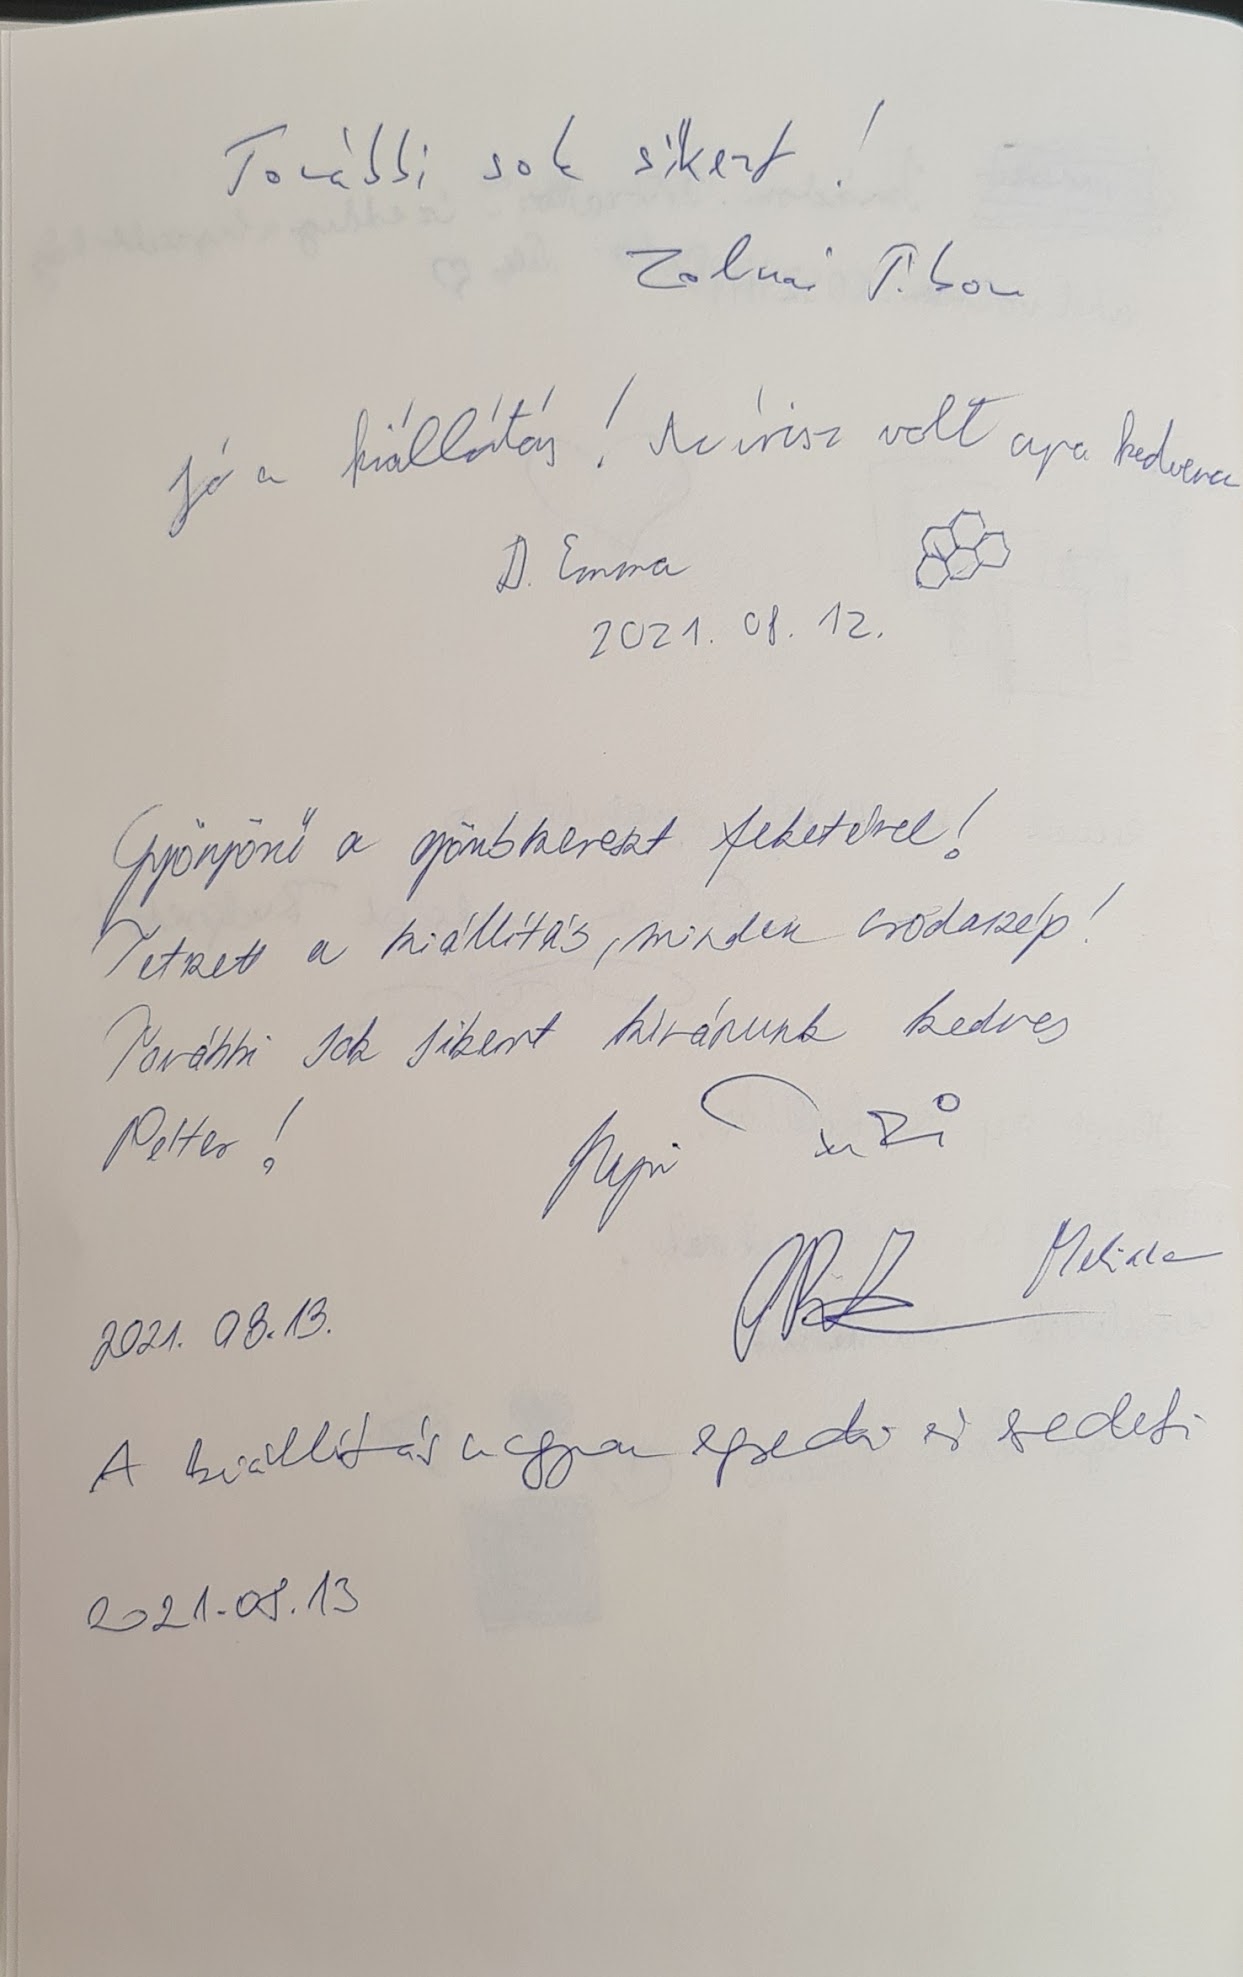 További sok sikert!
Zolnai Tibor
Jó a kiállítás! Az írisz volt apa kedvence
D. Emma
2021. 08. 12.
Gyönyörű a gömbkereszt feketével!
Tetszett a kiállítás, minden csodaszép!
További sok sikert kívánunk kedves
Petter!
Melinda
2021. 08. 13.
A kiállítás nagyon egyedi és eredeti
2021.08.13